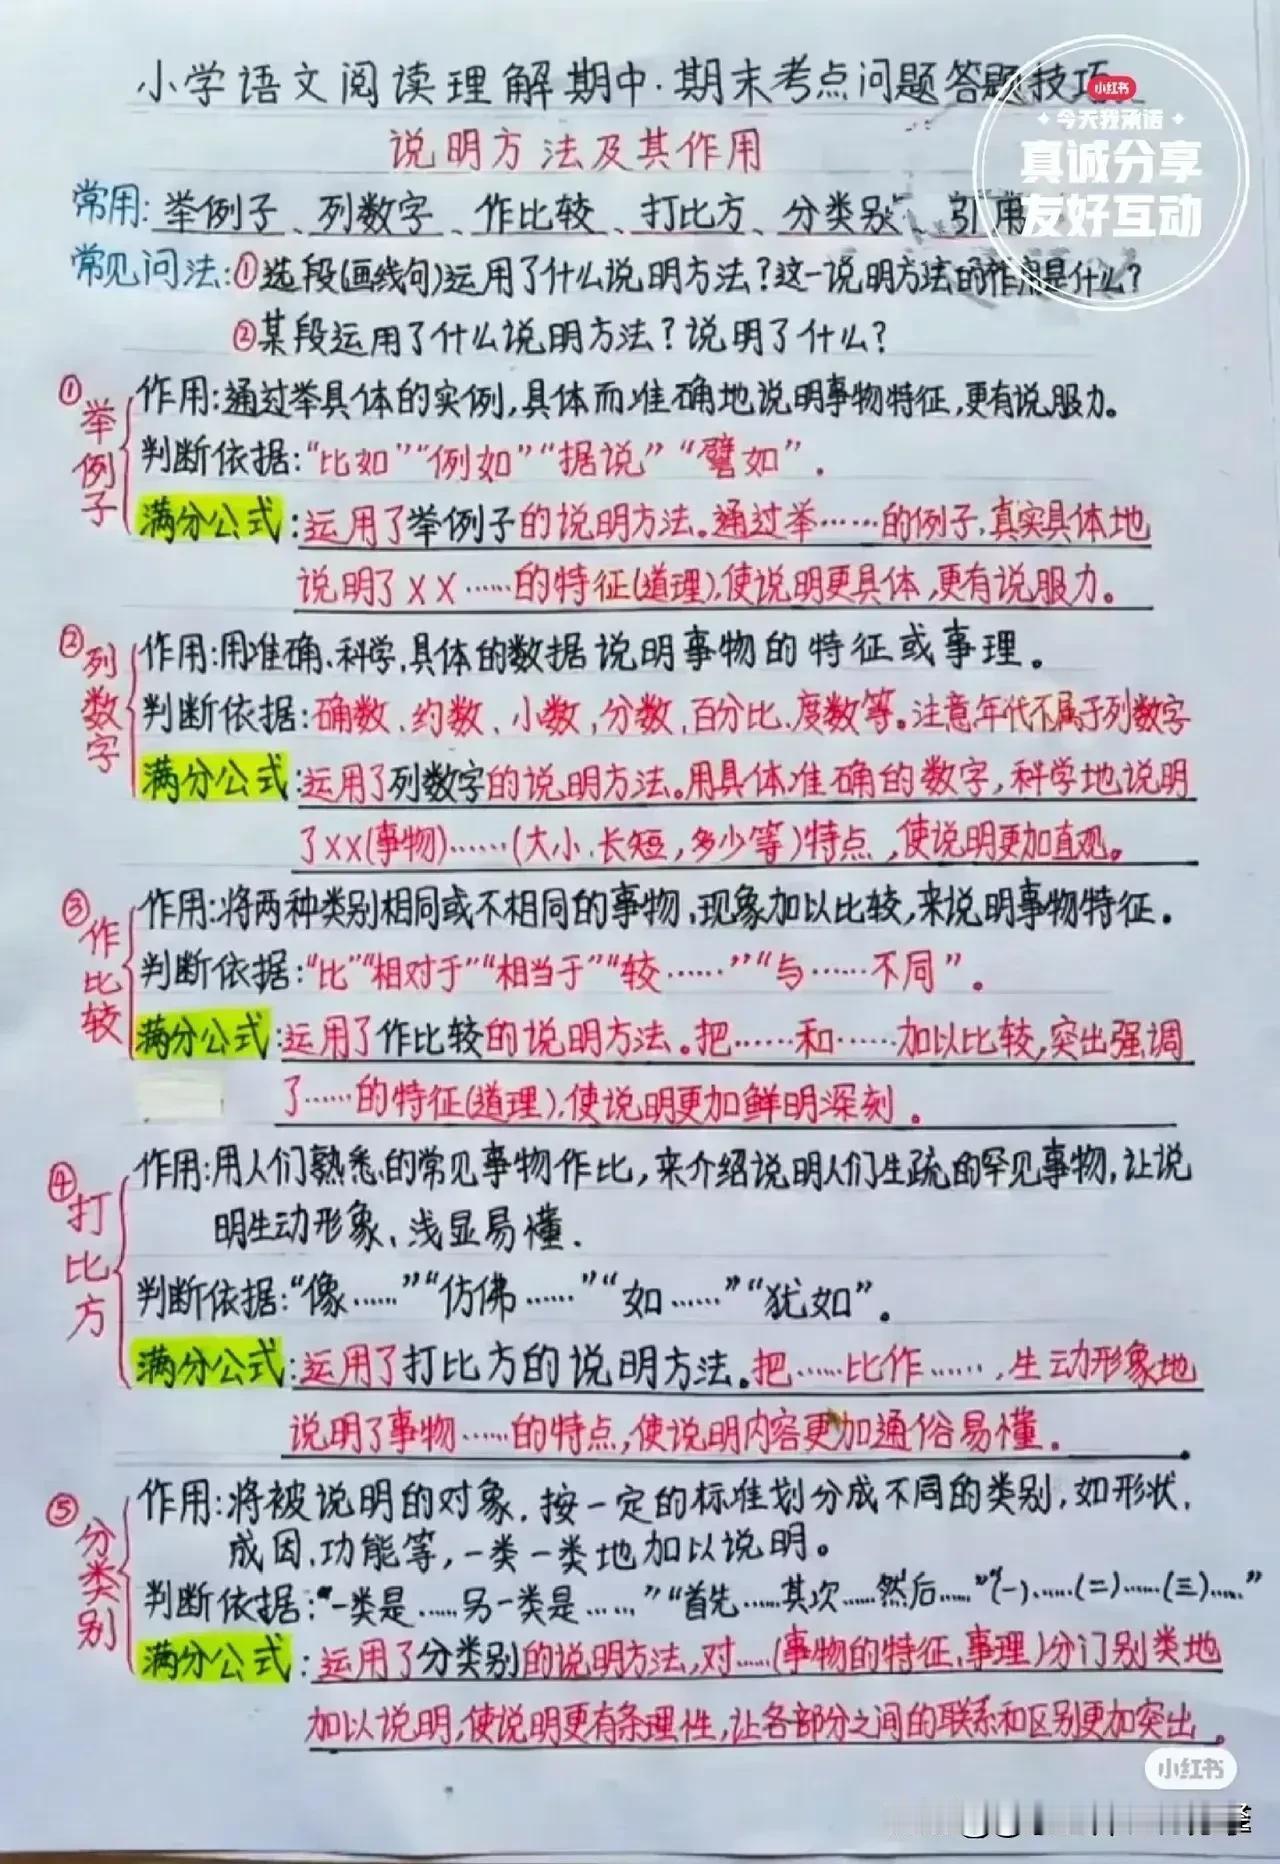 小学语文阅读理解期中·期末考点问题答题技巧
小红书
今天我承诺
真诚分享
友好互动
说明方法及其作用
常用:举例子、列数字、作比较、打比方、分类别、引用
常见问法:①选段(画线句)运用了什么说明方法?这一说明方法的作用是什么?
②某段运用了什么说明方法?说明了什么?
①举例子
作用:通过举具体的实例,具体而准确地说明事物特征,更有说服力。
判断依据:“比如”“例如”“据说”“譬如”.
满分公式:运用了举例子的说明方法。通过举……的例子,真实具体地
说明了XX……的特征(道理),使说明更具体,更有说服力。
②列数字
作用:用准确、科学,具体的数据说明事物的特征或事理。
判断依据:确数、约数、小数,分数,百分比、度数等。注意年代不属于列数字
满分公式:运用了列数字的说明方法。用具体准确的数字,科学地说明
了XX(事物)……(大小、长短,多少等)特点,使说明更加直观。
③作比较
作用:将两种类别相同或不相同的事物、现象加以比较,来说明事物特征.
判断依据:“比”“相对于”“相当于”“较……”“与……不同”。
满分公式:运用了作比较的说明方法。把……和……加以比较,突出强调
了……的特征(道理),使说明更加鲜明深刻。
④打比方
作用:用人们熟悉的常见事物作比,来介绍说明人们生疏的罕见事物,让说
明生动形象、浅显易懂.
判断依据:“像……”“仿佛……”“如……”“犹如”。
满分公式:运用了打比方的说明方法。把……比作……,生动形象地
说明了事物……的特点,使说明内容更加通俗易懂.
⑤分类别
作用:将被说明的对象,按一定的标准划分成不同的类别,如形状、
成因、功能等,一类一类地加以说明。
判断依据:“一类是……另一类是……”“首先……其次……然后……”“(一)……(二)……(三)……”
满分公式:运用了分类别的说明方法,对……(事物的特征、事理)分门别类地
加以说明,使说明更有条理性,让各部分之间的联系和区别更加突出。
小红书